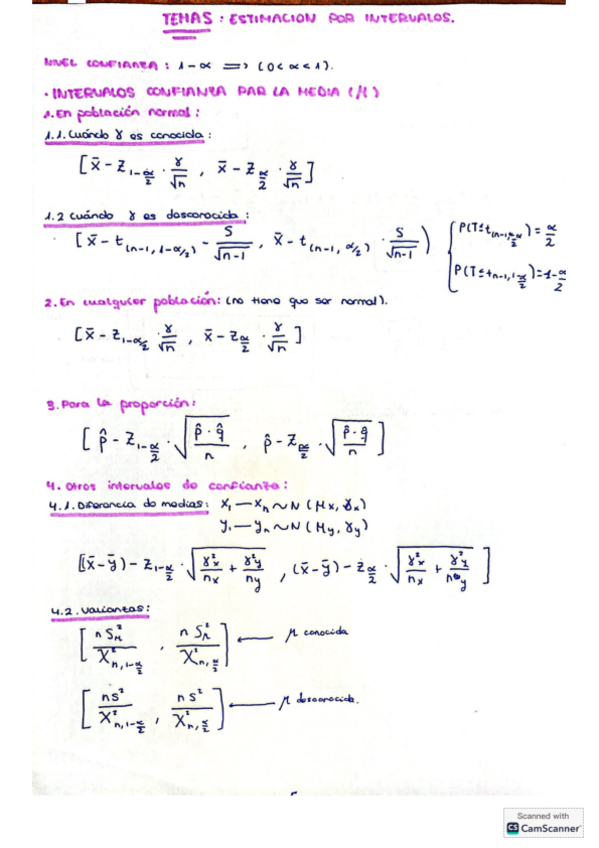 TEMAS : ESTIMACION POR INTERVALOS.
NIVEL CONFIANZA : 1-α => (0<α<1).
· INTERVALOS CONFIANZA PAR LA MEDIA (μ)
1. En población normal :
1.1. Cuándo γ es conocida :
[x̄ - Z_{1-α/2} · γ/√n , x̄ - Z_{α/2} · γ/√n]
1.2 Cuándo γ es desconocida :
[x̄ - t_{(n-1, 1-α/2)} - S/√(n-1) , x̄ - t_{(n-1, α/2)} · S/√(n-1)) { P(T≤t_{(n-1, α/2)}) = α/2
P(T≤t_{n-1, 1-α/2}) = 1-α/2
2. En cualquier población: (no tiene que ser normal).
[x̄ - Z_{1-α/2} · γ/√n , x̄ - Z_{α/2} · γ/√n]
3. Para la proporción:
[p̂ - Z_{1-α/2} · √(p̂·q̂/n) , p̂ - Z_{α/2} · √(p̂·q̂/n)]
4. Otros intervalos de confianza :
4.1. Diferencia de medias: X₁ — Xₙ ~ N (Mx, γx)
Y₁ — Yₙ ~ N (My, γy)
[(x̄-ȳ) - Z_{1-α/2} · √(γ²x/nx + γ²y/ny) , (x̄-ȳ) - Z_{α/2} · √(γ²x/nx + γ²y/ny)]
4.2. Varianzas:
[n S²μ/X²_{n,1-α/2} , n S²μ/X²_{n,α/2}] ← μ conocida
[n S²/X²_{n,1-α/2} , n S²/X²_{n,α/2}] ← μ desconocida.
Scanned with
CS CamScanner